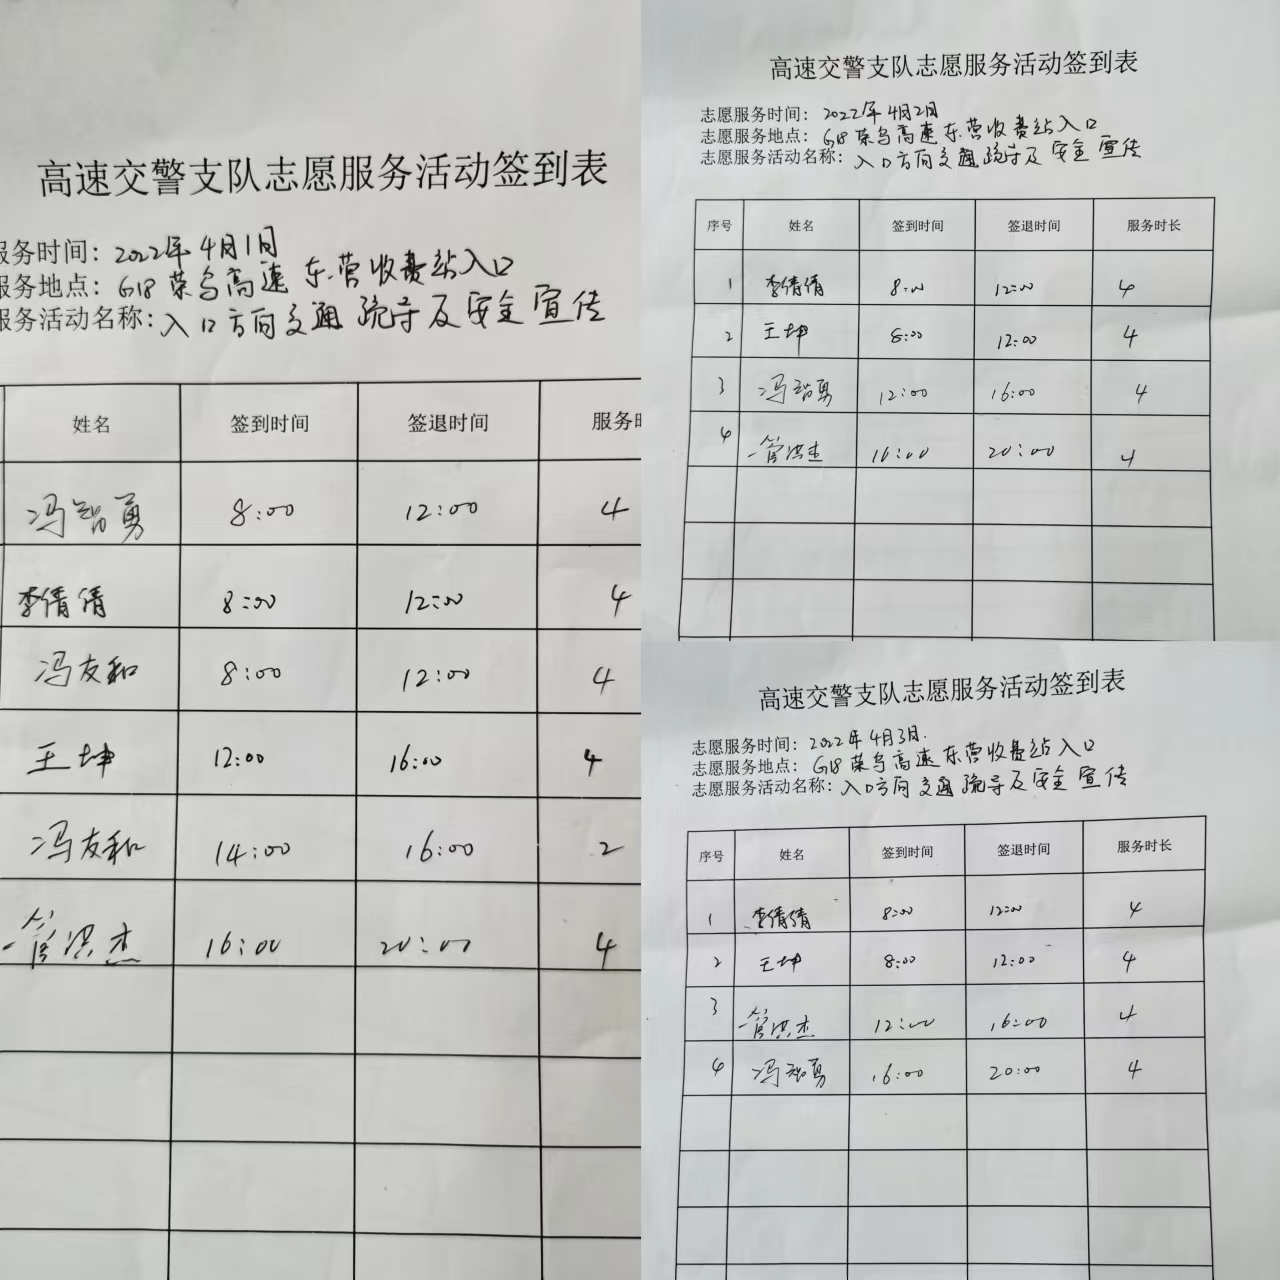 高速交警支队志愿服务活动签到表
服务时间：2022年4月1日
服务地点：G18荣乌高速东营收费站入口
服务活动名称：入口方向交通疏导及安全宣传
姓名 签到时间 签退时间 服务时
冯智勇 8:00 12:00 4
李倩倩 8:00 12:00 4
冯友和 8:00 12:00 4
王坤 12:00 16:00 4
冯友和 14:00 16:00 2
管洪杰 16:00 20:00 4
高速交警支队志愿服务活动签到表
志愿服务时间：2022年4月2日
志愿服务地点：G18荣乌高速东营收费站入口
志愿服务活动名称：入口方向交通疏导及安全宣传
序号 姓名 签到时间 签退时间 服务时长
1 李倩倩 8:00 12:00 4
2 王坤 8:00 12:00 4
3 冯智勇 12:00 16:00 4
4 管洪杰 16:00 20:00 4
高速交警支队志愿服务活动签到表
志愿服务时间：2022年4月3日.
志愿服务地点：G18荣乌高速东营收费站入口
志愿服务活动名称：入口方向交通疏导及安全宣传
序号 姓名 签到时间 签退时间 服务时长
1 李倩倩 8:00 12:00 4
2 王坤 8:00 12:00 4
3 管洪杰 12:00 16:00 4
4 冯智勇 16:00 20:00 4